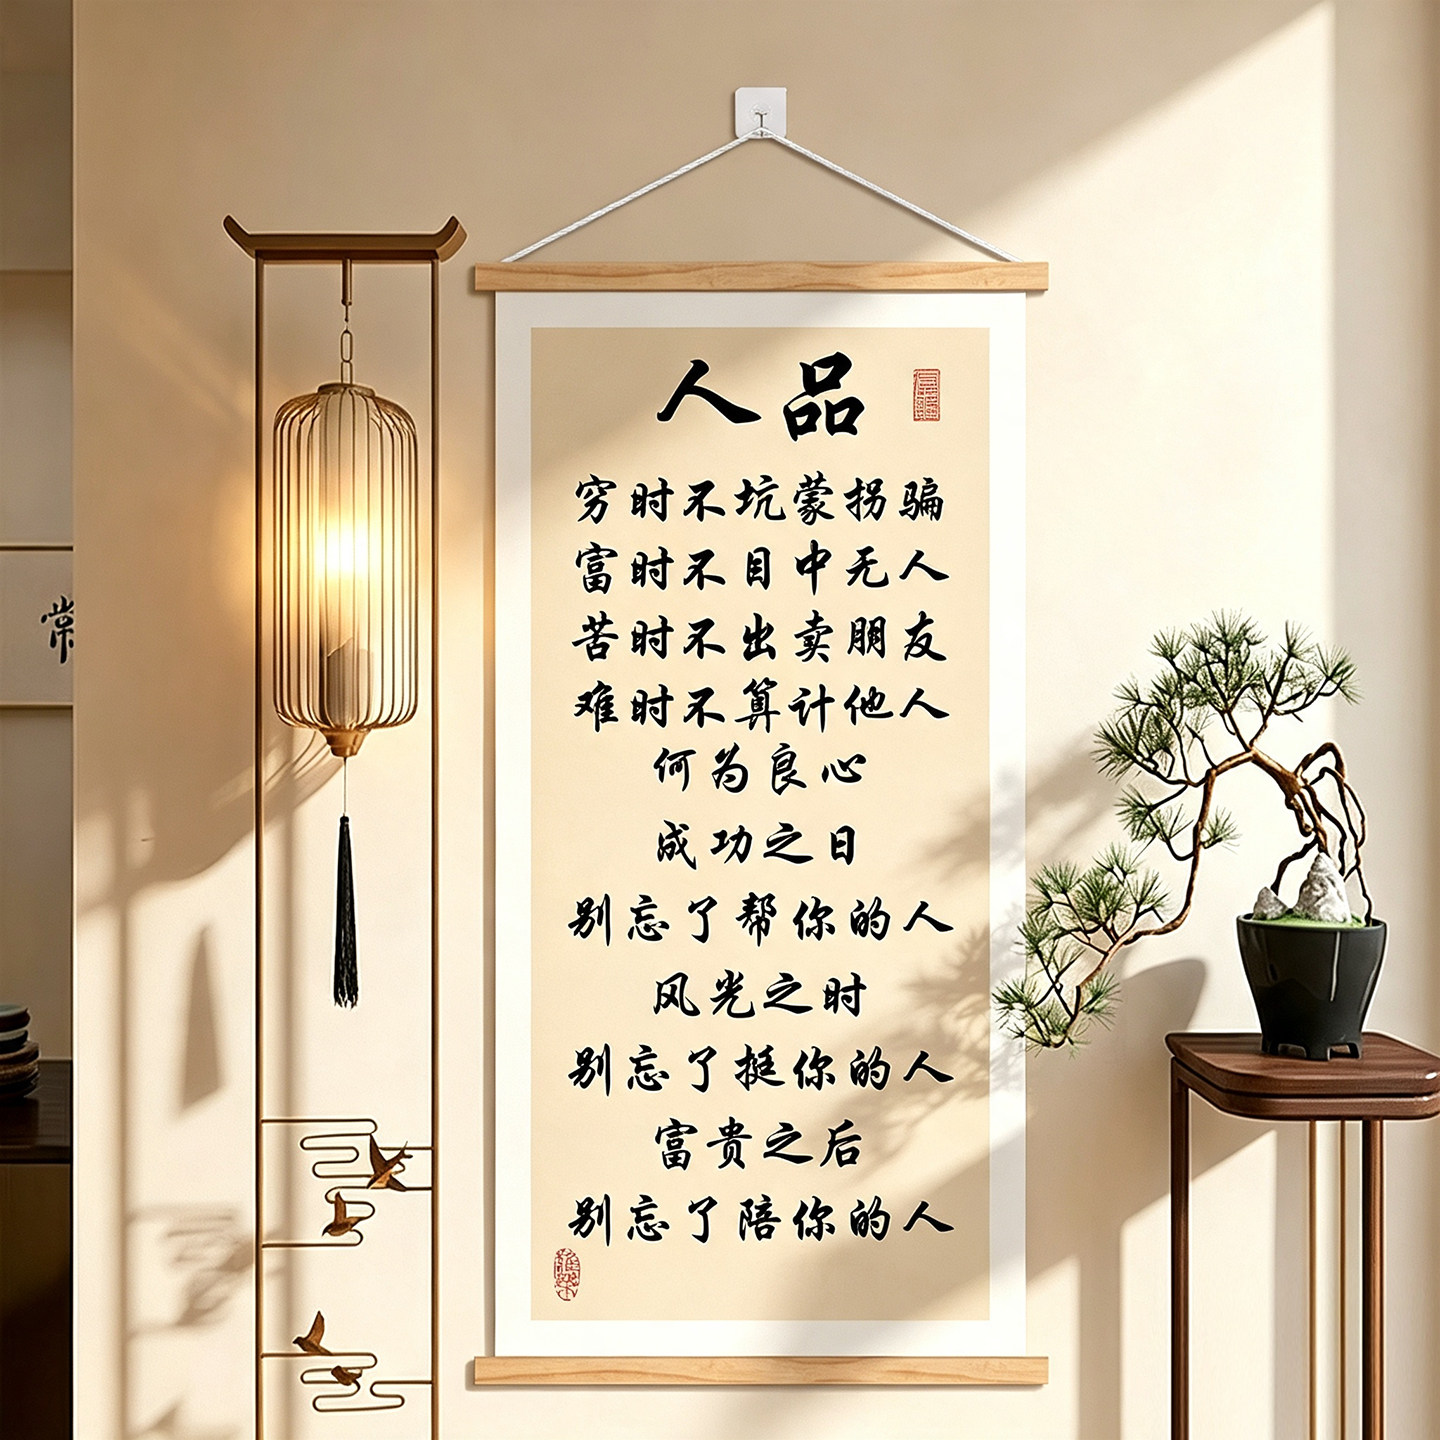 人品
穷时不坑蒙拐骗
富时不目中无人
苦时不出卖朋友
难时不算计他人
何为良心
成功之日
别忘了帮你的人
风光之时
别忘了挺你的人
富贵之后
别忘了陪你的人
常